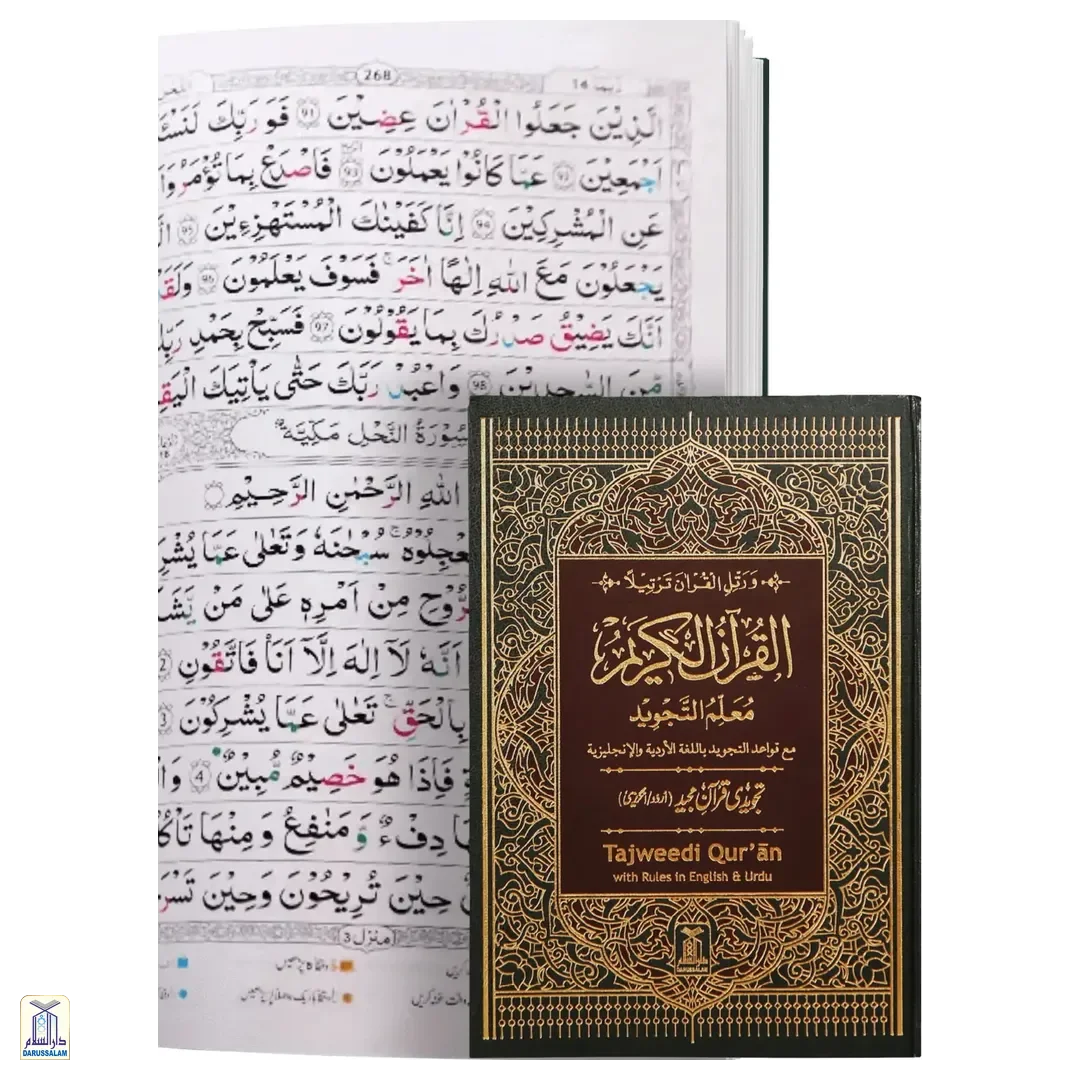 268
ربما 14
الَّذِيْنَ جَعَلُوا الْقُرْاٰنَ عِضِيْنَ ۝91 فَوَرَبِّكَ
اَجْمَعِيْنَ ۝ عَمَّا كَانُوْا يَعْمَلُوْنَ ۝93 فَاصْدَعْ بِمَا تُؤْمَرُ وَاَ
عَنِ الْمُشْرِكِيْنَ ۝94 اِنَّا كَفَيْنٰكَ الْمُسْتَهْزِءِيْنَ ۝95
يَجْعَلُوْنَ مَعَ اللّٰهِ اِلٰهًا اٰخَرَ ۚ فَسَوْفَ يَعْلَمُوْنَ ۝96 وَلَقَ
اَنَّكَ يَضِيْقُ صَدْرُكَ بِمَا يَقُوْلُوْنَ ۝97 فَسَبِّحْ بِحَمْدِ رَبِّكَ
مِّنَ السّٰجِدِيْنَ ۝98 وَاعْبُدْ رَبَّكَ حَتّٰى يَاْتِيَكَ
سُوْرَةُ النَّحْلِ مَكِّيَّةٌ
اللّٰهِ الرَّحْمٰنِ الرَّحِيْمِ ۝
سُبْحٰنَهٗ وَتَعٰلٰى عَمَّا
مِنْ اَمْرِهٖ عَلٰى مَنْ
اَنَّهٗ لَاۤ اِلٰهَ اِلَّاۤ اَنَا فَاتَّقُوْنِ ۝2
بِالْحَقِّ ؕ تَعٰلٰى عَمَّا يُشْرِكُوْنَ ۝3
فَاِذَا هُوَ خَصِيْمٌ مُّبِيْنٌ ۝4
دِفْءٌ وَّ مَنَافِعُ وَ مِنْهَا
حِيْنَ تُرِيْحُوْنَ وَحِيْنَ
منزل 3
وَرَتِّلِ الْقُرْاٰنَ تَرْتِيْلًا
القُرآنُ الكَرِيمُ
مُعَلِّمُ التَّجْوِيدِ
مع قواعد التجويد باللغة الأردية والإنجليزية
تجویدی قرآن مجید (اردو/انگریزی)
Tajweedi Qur'ān
with Rules in English & Urdu
دارالسلام
DARUSSALAM
دارالسلام
DARUSSALAM